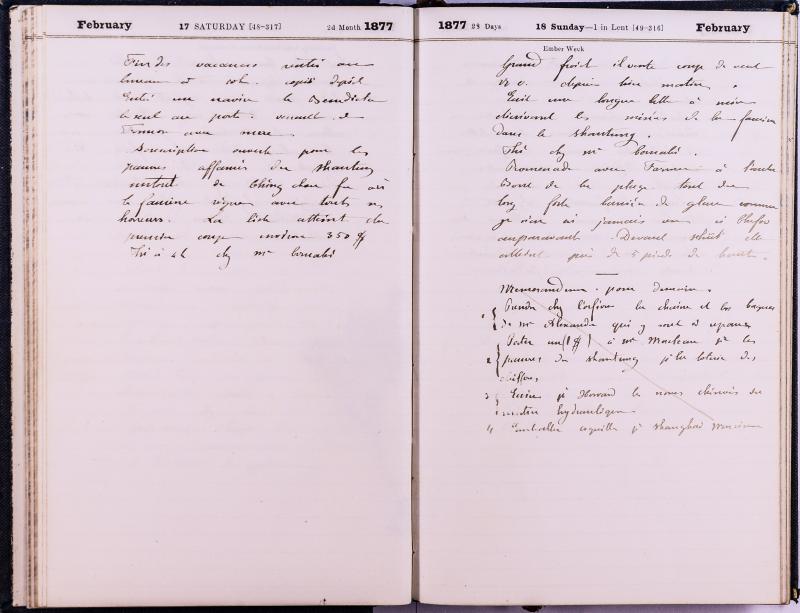 February 17 SATURDAY [48-317] 2d Month 1877
Fin des vacances
bureau à
Entré un navire le Benedicta
le seul au port.
Souscription ouverte pour les
pauvres affamés du Shantung
surtout de Ching chou fu où
la famine règne avec toutes ses
horreurs. La liste atteint du
premier coup environ 350 $
Thé à 4h chez Mr Cornabé
1877 28 Days 18 Sunday—1 in Lent [49-316] February
Ember Week
Grand froid il vente coup de vent
N. O. depuis bien matin.
Ecrit une longue lettre à
décrivant les misères de la famine
dans le Shantung.
Thé chez Mr Cornabé.
Promenade avec Farmer à l'autre
bout de la plage tout du
long forte barrière de glace comme
je n'en ai jamais vu à Chefoo
auparavant. Devant elle
atteint près de 5 pieds de haut.
Memorandum pour demain.
1 Prendre chez l'orfèvre la chaine et les bagues
de Mr Alexandre qui y sont à réparer
2 Porter un (1 $) à Mr pr les
pauvres du Shantung pr la loterie des
chiffons
3 Ecrire pr Howard les noms chinois du
hydraulique
4 coquilles pr Shanghai